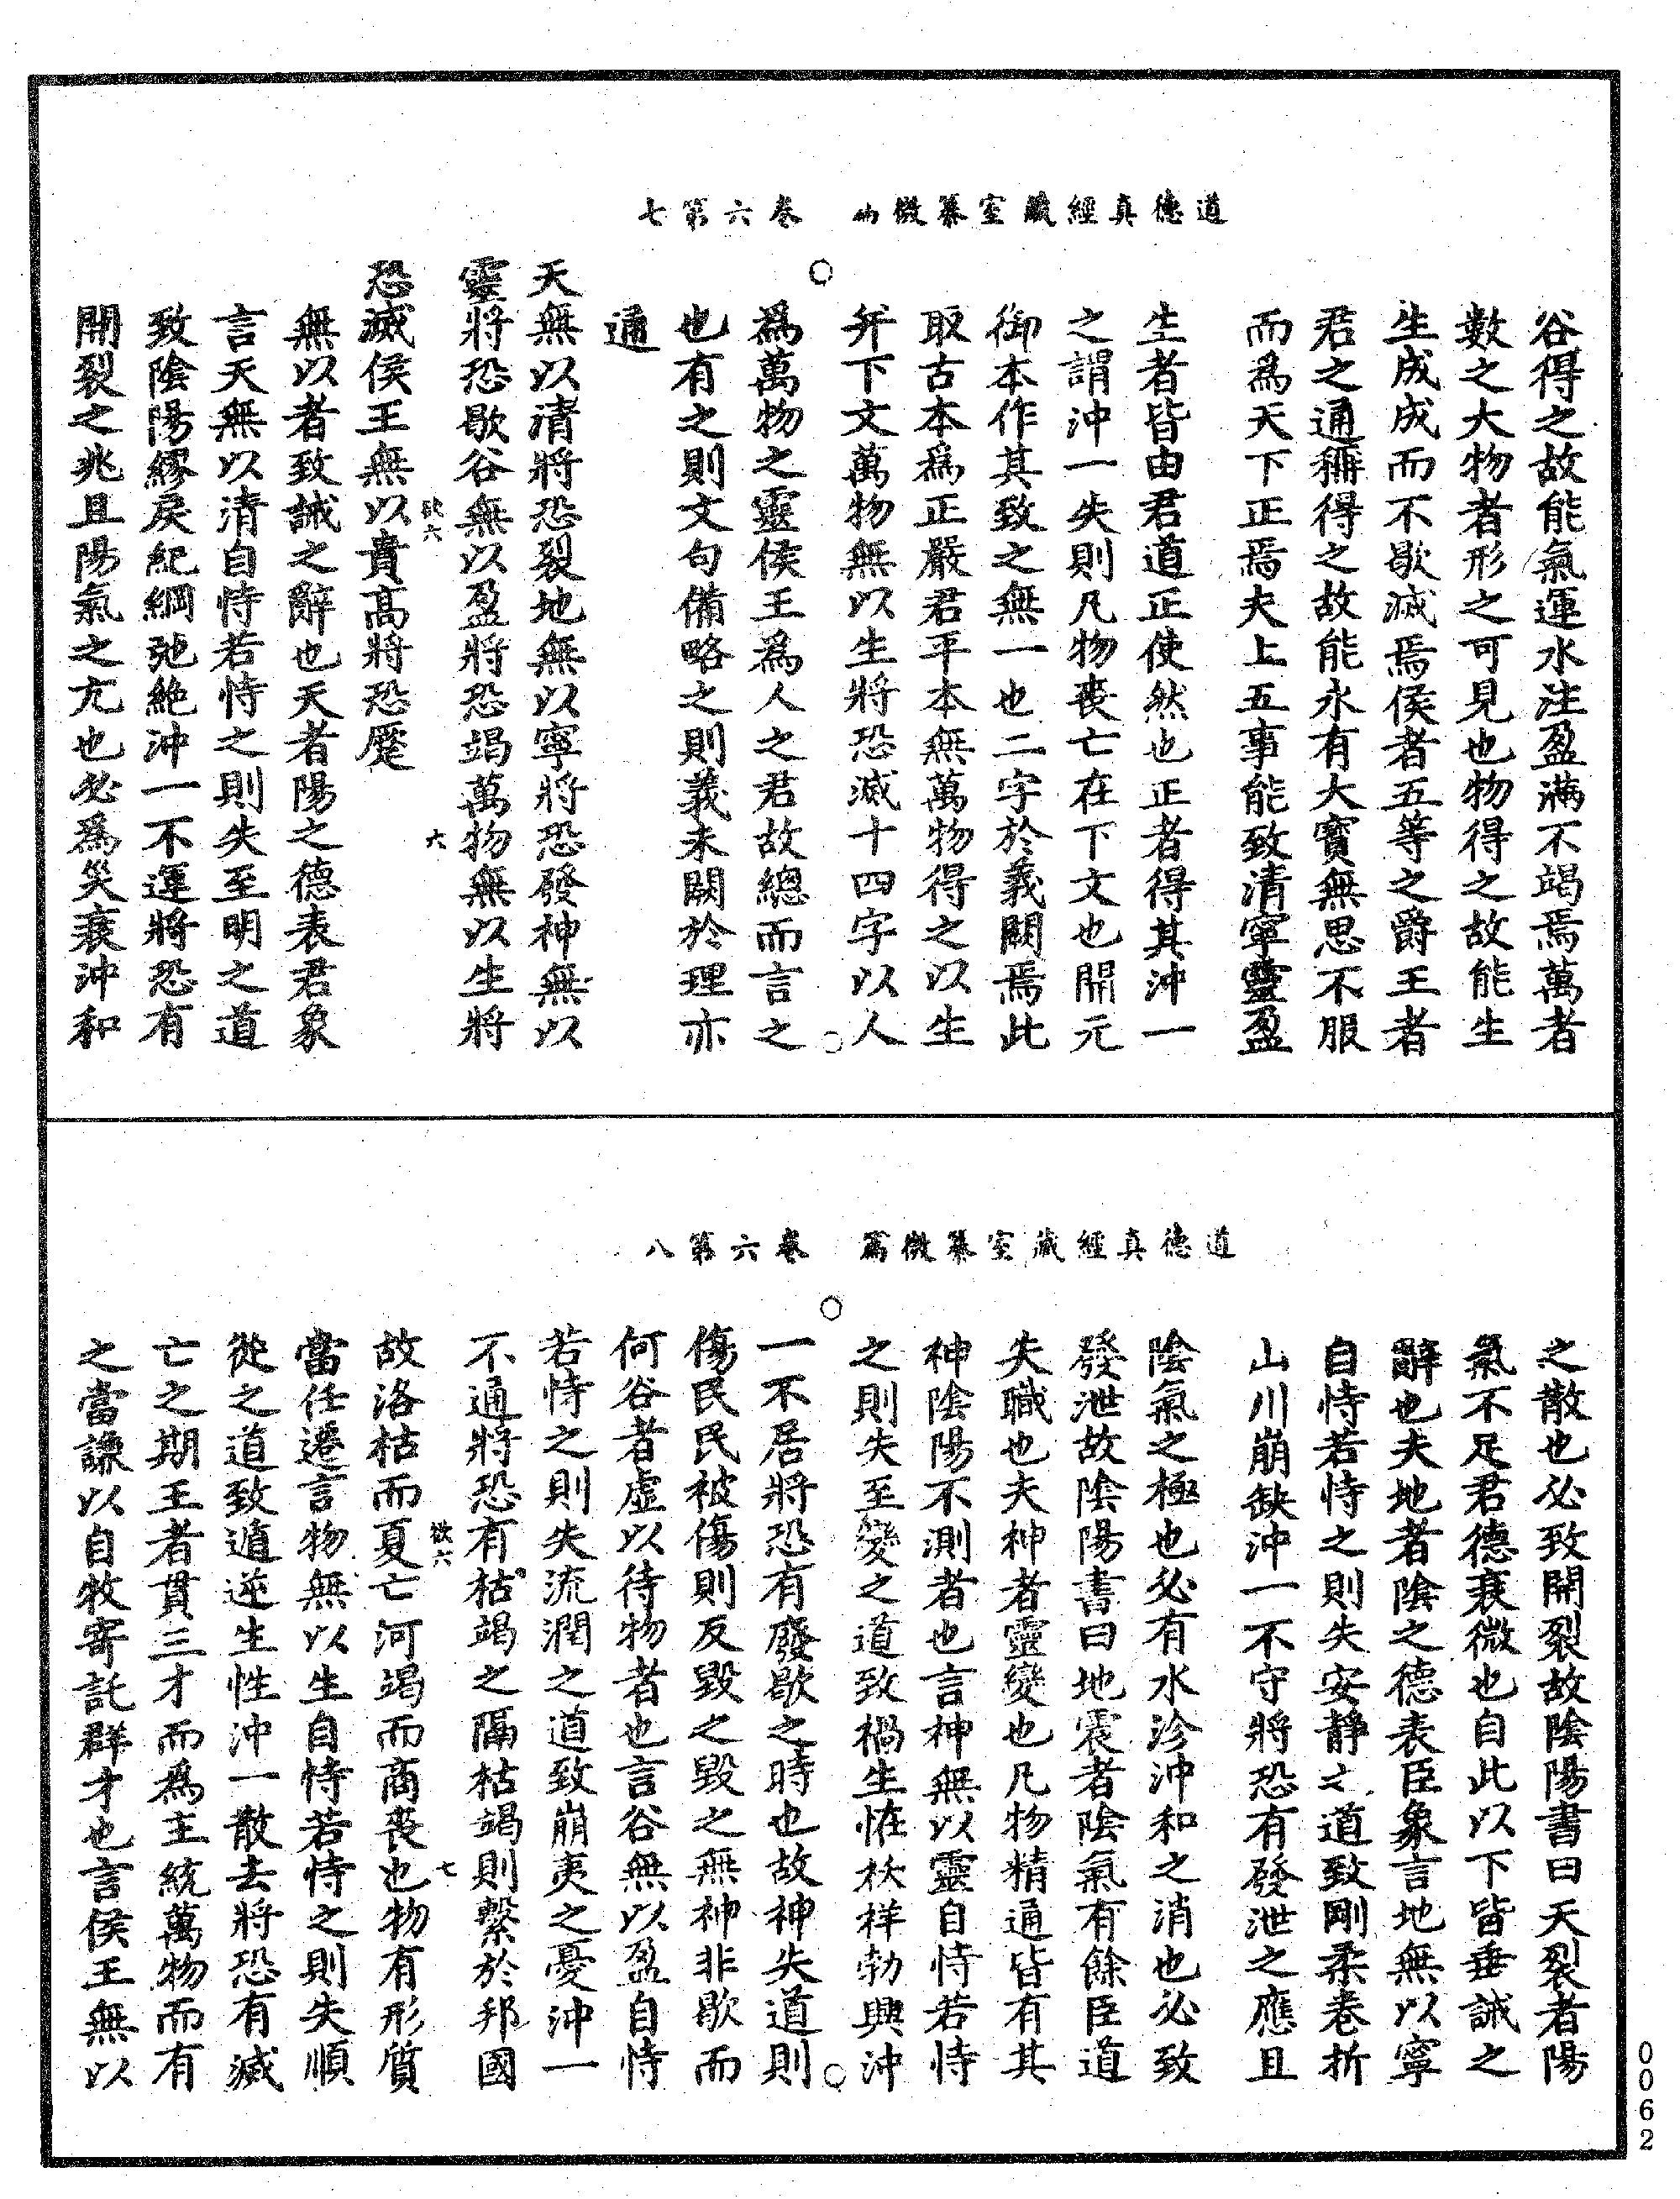 道德真經藏室纂微篇　卷六第七
谷得之故能氣運水注盈滿不竭焉萬者
數之大物者形之可見也物得之故能生
生成成而不歇滅焉侯者五等之爵王者
君之通稱得之故能永有大寶無思不服
而爲天下正焉夫上五事能致清寧靈盈
生者皆由君道正使然也正者得其沖一
之謂沖一失則凡物喪亡在下文也開元
御本作其致之無一也二字於義闕焉此
取古本爲正嚴君平本無萬物得之以生
并下文萬物無以生將恐滅十四字以人
爲萬物之靈侯王爲人之君故總而言之
也有之則文句備略之則義未闕於理亦
通
天無以清將恐裂地無以寧將恐發神無以
靈將恐歇谷無以盈將恐竭萬物無以生將
欲六　六
恐滅侯王無以貴高將恐蹷
無以者致誡之辭也天者陽之德表君象
言天無以清自恃若恃之則失至明之道
致陰陽繆戾紀綱弛絶沖一不運將恐有
開裂之兆且陽氣之亢也必爲災衰沖和
道德真經藏室纂微篇　卷六第八
之散也必致開裂故陰陽書曰天裂者陽
氣不足君德衰微也自此以下皆垂誡之
辭也夫地者陰之德表臣象言地無以寧
自恃若恃之則失安靜之道致剛柔卷折
山川崩缺沖一不守將恐有發泄之應且
陰氣之極也必有水沴沖和之消也必致
發泄故陰陽書曰地震者陰氣有餘臣道
失職也夫神者靈變也凡物精通皆有其
神陰陽不測者也言神無以靈自恃若恃
之則失至變之道致禍生恠祅祥勃興沖
一不居將恐有廢歇之時也故神失道則
傷民民被傷則反毀之毀之無神非歇而
何谷者虛以待物者也言谷無以盈自恃
若恃之則失流潤之道致崩夷之憂沖一
不通將恐有枯竭之隔枯竭則繫於邦國
欲六　七
故洛枯而夏亡河竭而商喪也物有形質
當任遷言物無以生自恃若恃之則失順
從之道致遁逆生性沖一散去將恐有滅
亡之期王者貫三才而爲主統萬物而有
之當謙以自牧寄託群才也言侯王無以
0062